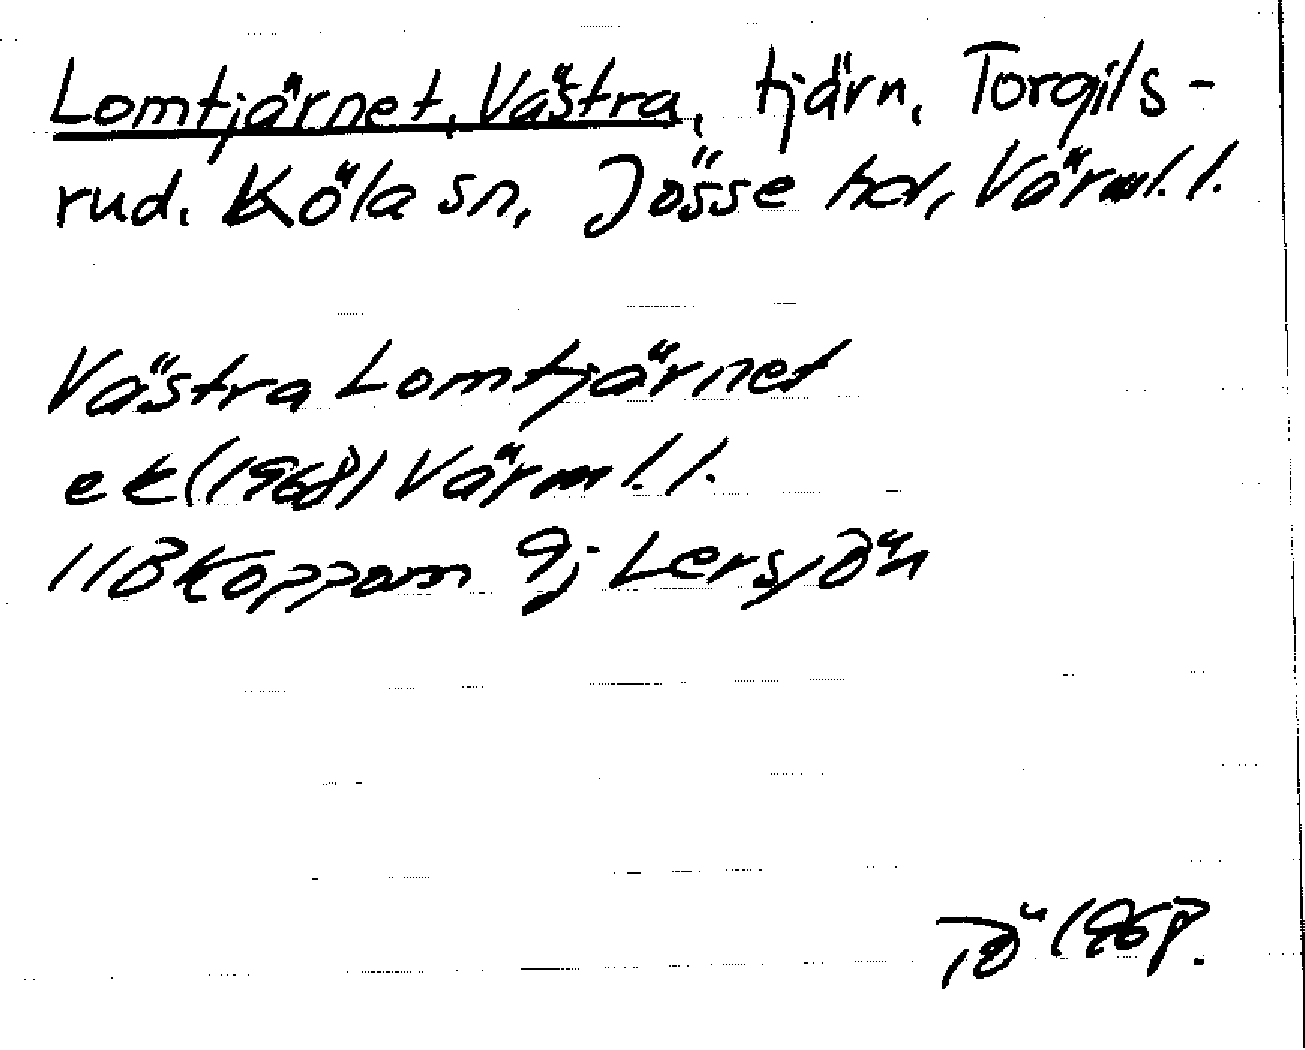 Lomtjärnet, Västra, tjärn, Torgils-
rud. Köla sn, Jösse hd, Värml. l.
Västra Lomtjärnet
ek (1968) Värml. l.
11B Koppom 9j Lersjön
TÖ 1968.